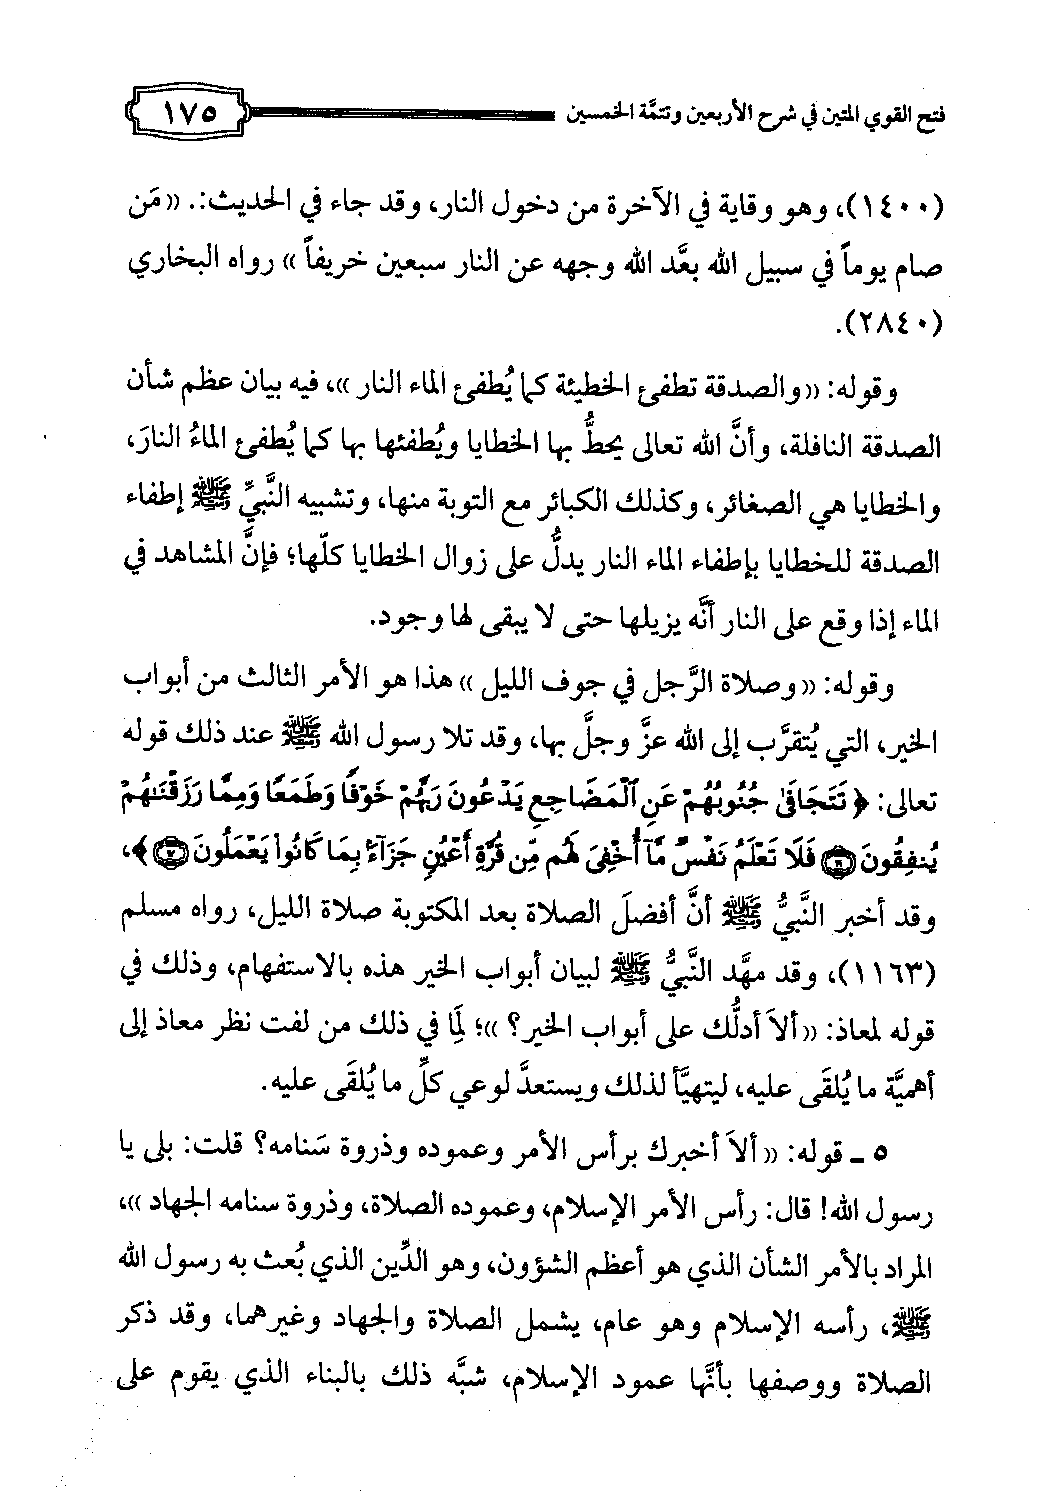 فتح القوي المتين في شرح الأربعين وتتمَّة الخمسين ١٧٥
(١٤٠٠)، وهو وقاية في الآخرة من دخول النار، وقد جاء في الحديث:. «مَن
صام يوماً في سبيل الله بعَّد الله وجهه عن النار سبعين خريفاً» رواه البخاري
(٢٨٤٠).
وقوله: «والصدقة تطفئ الخطيئة كما يُطفئ الماء النار»، فيه بيان عظم شأن
الصدقة النافلة، وأنَّ الله تعالى يحطُّ بها الخطايا ويُطفئها بها كما يُطفئ الماءُ النارَ،
والخطايا هي الصغائر، وكذلك الكبائر مع التوبة منها، وتشبيه النَّبيِّ ﷺ إطفاء
الصدقة للخطايا بإطفاء الماء النار يدلُّ على زوال الخطايا كلّها؛ فإنَّ المشاهد في
الماء إذا وقع على النار أنَّه يزيلها حتى لا يبقى لها وجود.
وقوله: «وصلاة الرَّجل في جوف الليل» هذا هو الأمر الثالث من أبواب
الخير، التي يُتقرَّب إلى الله عزَّ وجلَّ بها، وقد تلا رسول الله ﷺ عند ذلك قوله
تعالى: ﴿تَتَجَافَىٰ جُنُوبُهُمْ عَنِ ٱلْمَضَاجِعِ يَدْعُونَ رَبَّهُمْ خَوْفًا وَطَمَعًا وَمِمَّا رَزَقْنَٰهُمْ
يُنفِقُونَ ۝١٦ فَلَا تَعْلَمُ نَفْسٌ مَّآ أُخْفِىَ لَهُم مِّن قُرَّةِ أَعْيُنٍ جَزَآءًۢ بِمَا كَانُوا۟ يَعْمَلُونَ ۝١٧﴾،
وقد أخبر النَّبيُّ ﷺ أنَّ أفضلَ الصلاة بعد المكتوبة صلاة الليل، رواه مسلم
(١١٦٣)، وقد مهَّد النَّبيُّ ﷺ لبيان أبواب الخير هذه بالاستفهام، وذلك في
قوله لمعاذ: «ألاَ أدلُّك على أبواب الخير؟»؛ لِمَا في ذلك من لفت نظر معاذ إلى
أهميَّة ما يُلقَى عليه، ليتهيَّأ لذلك ويستعدَّ لوعي كلِّ ما يُلقَى عليه.
٥ ـ قوله: «ألاَ أخبرك برأس الأمر وعموده وذروة سَنامه؟ قلت: بلى يا
رسول الله! قال: رأس الأمر الإسلام، وعموده الصلاة، وذروة سنامه الجهاد»،
المراد بالأمر الشأن الذي هو أعظم الشؤون، وهو الدِّين الذي بُعث به رسول الله
ﷺ، رأسه الإسلام وهو عام، يشمل الصلاة والجهاد وغيرهما، وقد ذكر
الصلاة ووصفها بأنَّها عمود الإسلام، شبَّه ذلك بالبناء الذي يقوم على